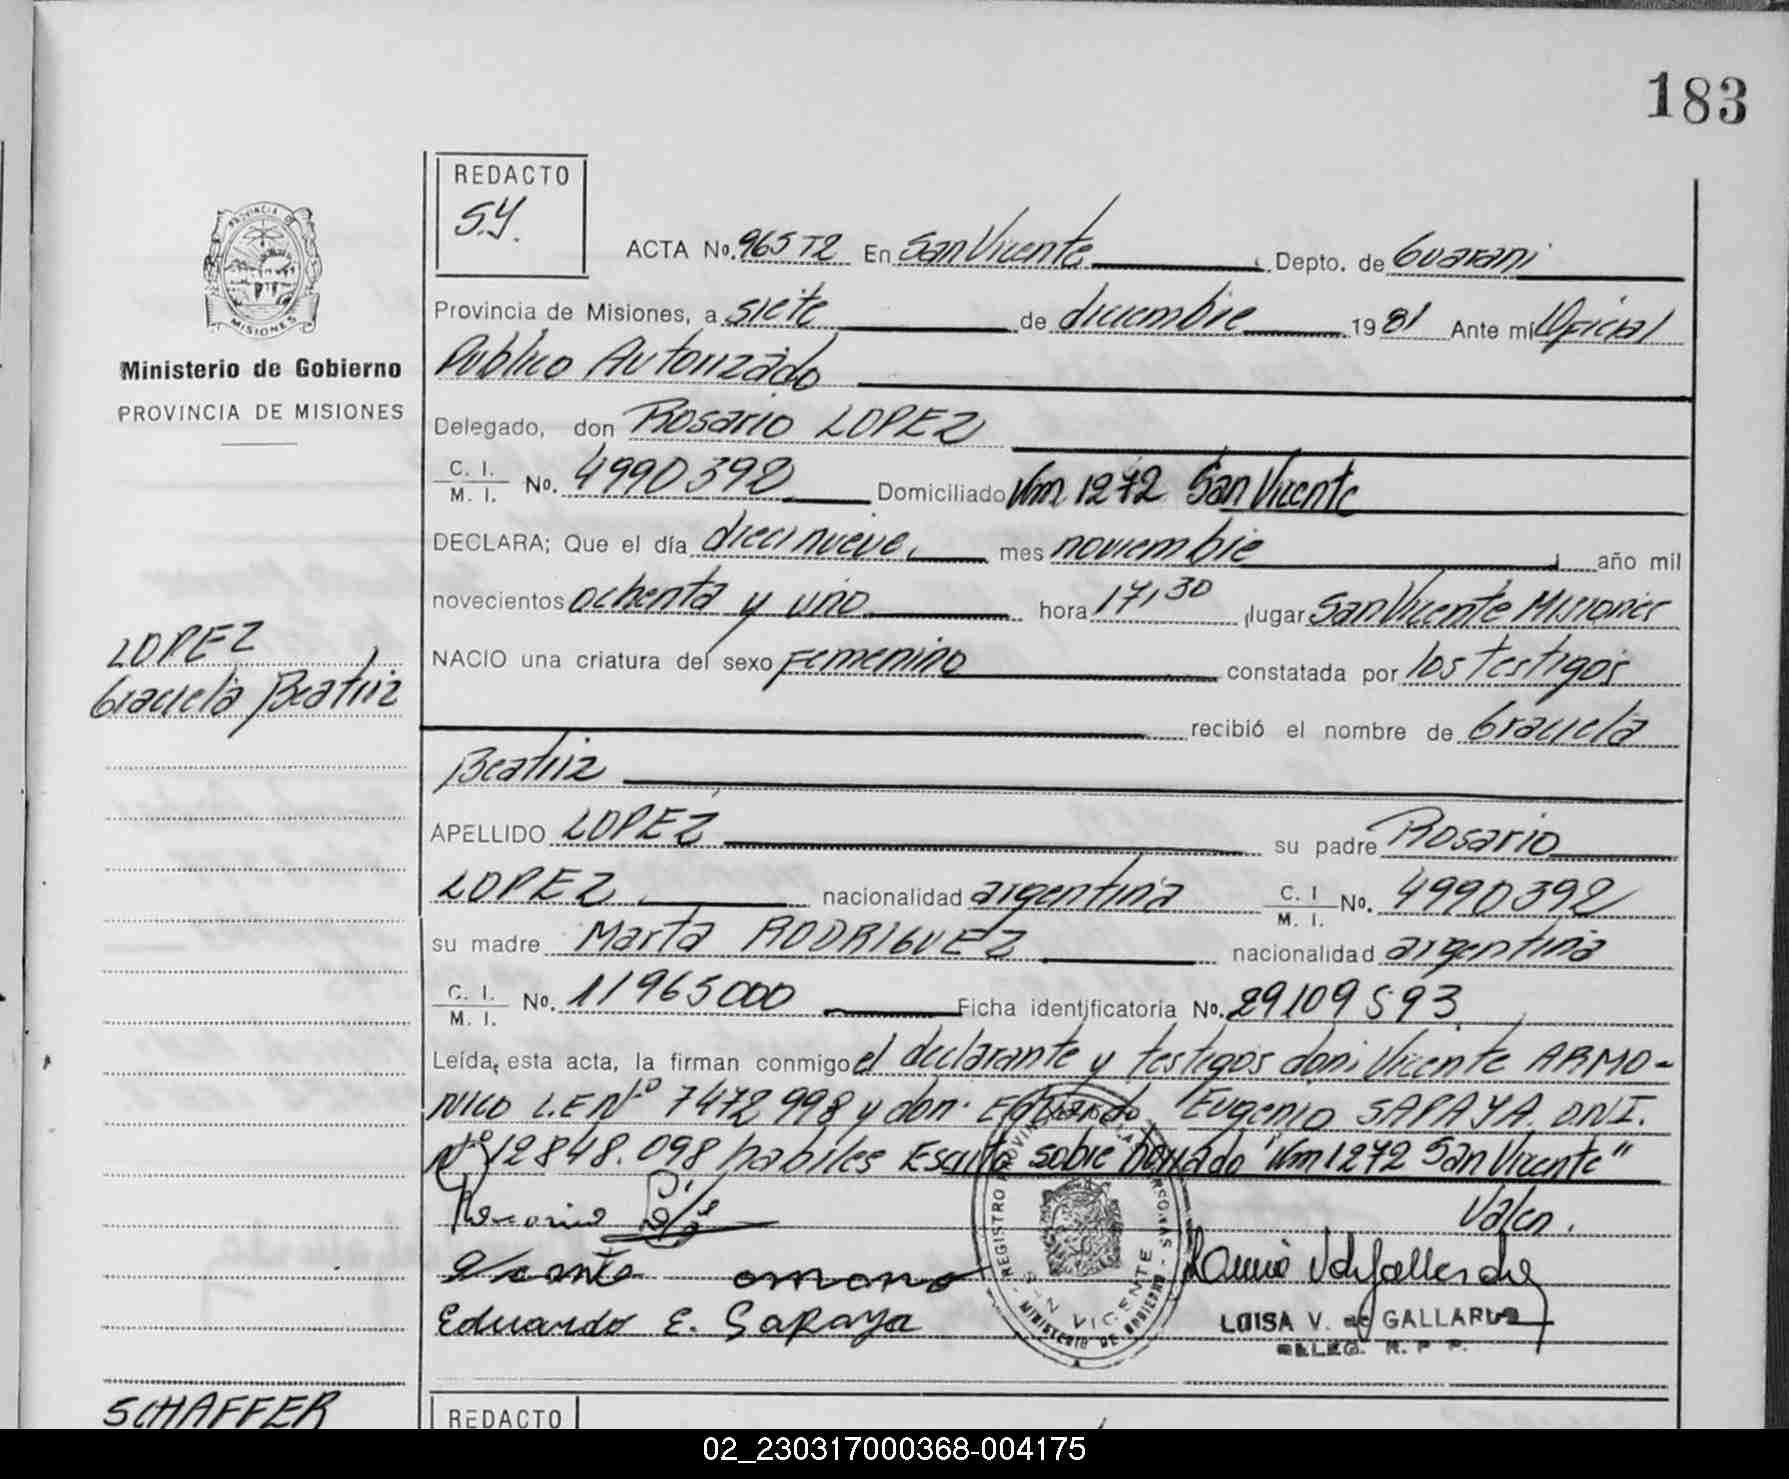 183
REDACTO
S.Y.
PROVINCIA DE
MISIONES
Ministerio de Gobierno
PROVINCIA DE MISIONES
ACTA No. 965 T2 En San Vicente Depto. de Guarani
Provincia de Misiones, a siete de diciembre 1981 Ante mí Oficial
Publico Autorizado
Delegado, don Rosario LOPEZ
C. I. M. I. No. 4990392 Domiciliado Km 1272 San Vicente
DECLARA; Que el día diecinueve mes noviembre año mil
novecientos ochenta y uno hora 17,30 lugar San Vicente Misiones
LOPEZ
Graciela Beatriz
NACIO una criatura del sexo Femenino constatada por los testigos
recibió el nombre de Graciela
Beatriz
APELLIDO LOPEZ su padre Rosario
LOPEZ nacionalidad argentina C. I M. I. No. 4990392
su madre Marta RODRIGUEZ nacionalidad argentina
C. I. M. I. No. 11965000 Ficha identificatoria No. 29109593
Leída, esta acta, la firman conmigo el declarante y testigos don: Vicente ARMO-
NICO L.E Nº 7472998 y don: Eduardo Eugenio SAPAYA. D.N.I.
Nº 12848.098 habiles Escrito sobre borrado "Km 1272 San Vicente"
Valen.
Eduardo E. Sapaya
REGISTRO PROVINCIAL DE LAS PERSONAS
SAN VICENTE
MINISTERIO DE GOBIERNO
LUISA V. de GALLARDO
DELEG. R. P. P.
SCHAFFER
REDACTO
02_230317000368-004175